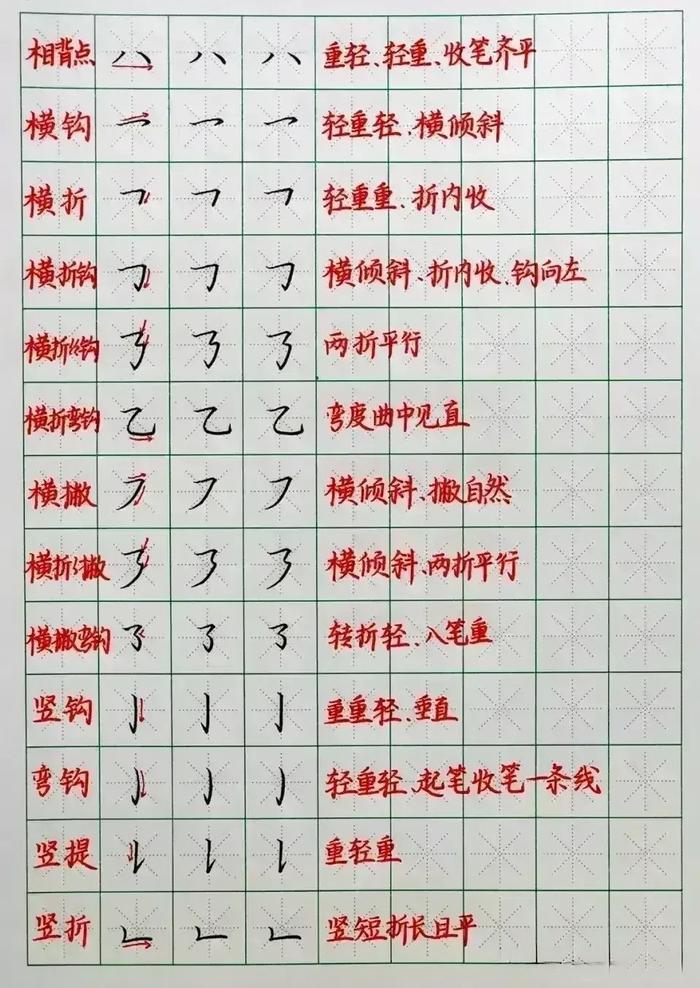 相背点 八 八 八 重轻、轻重、收笔齐平
横钩 乛 乛 乛 轻重轻、横倾斜
横折 𠃍 𠃍 𠃍 轻重重、折内收
横折钩 𠃌 𠃌 𠃌 横倾斜、折内收、钩向左
横折折钩 𠄎 𠄎 𠄎 两折平行
横折弯钩 乙 乙 乙 弯度曲中见直
横撇 ㇇ ㇇ ㇇ 横倾斜、撇自然
横折折撇 ㇋ ㇋ ㇋ 横倾斜、两折平行
横撇弯钩 ㇌ ㇌ ㇌ 转折轻、八笔重
竖钩 亅 亅 亅 重重轻、垂直
弯钩 ㇁ ㇁ ㇁ 轻重轻、起笔收笔一条线
竖提 𠄌 𠄌 𠄌 重轻重
竖折 𠃊 𠃊 𠃊 竖短折长且平